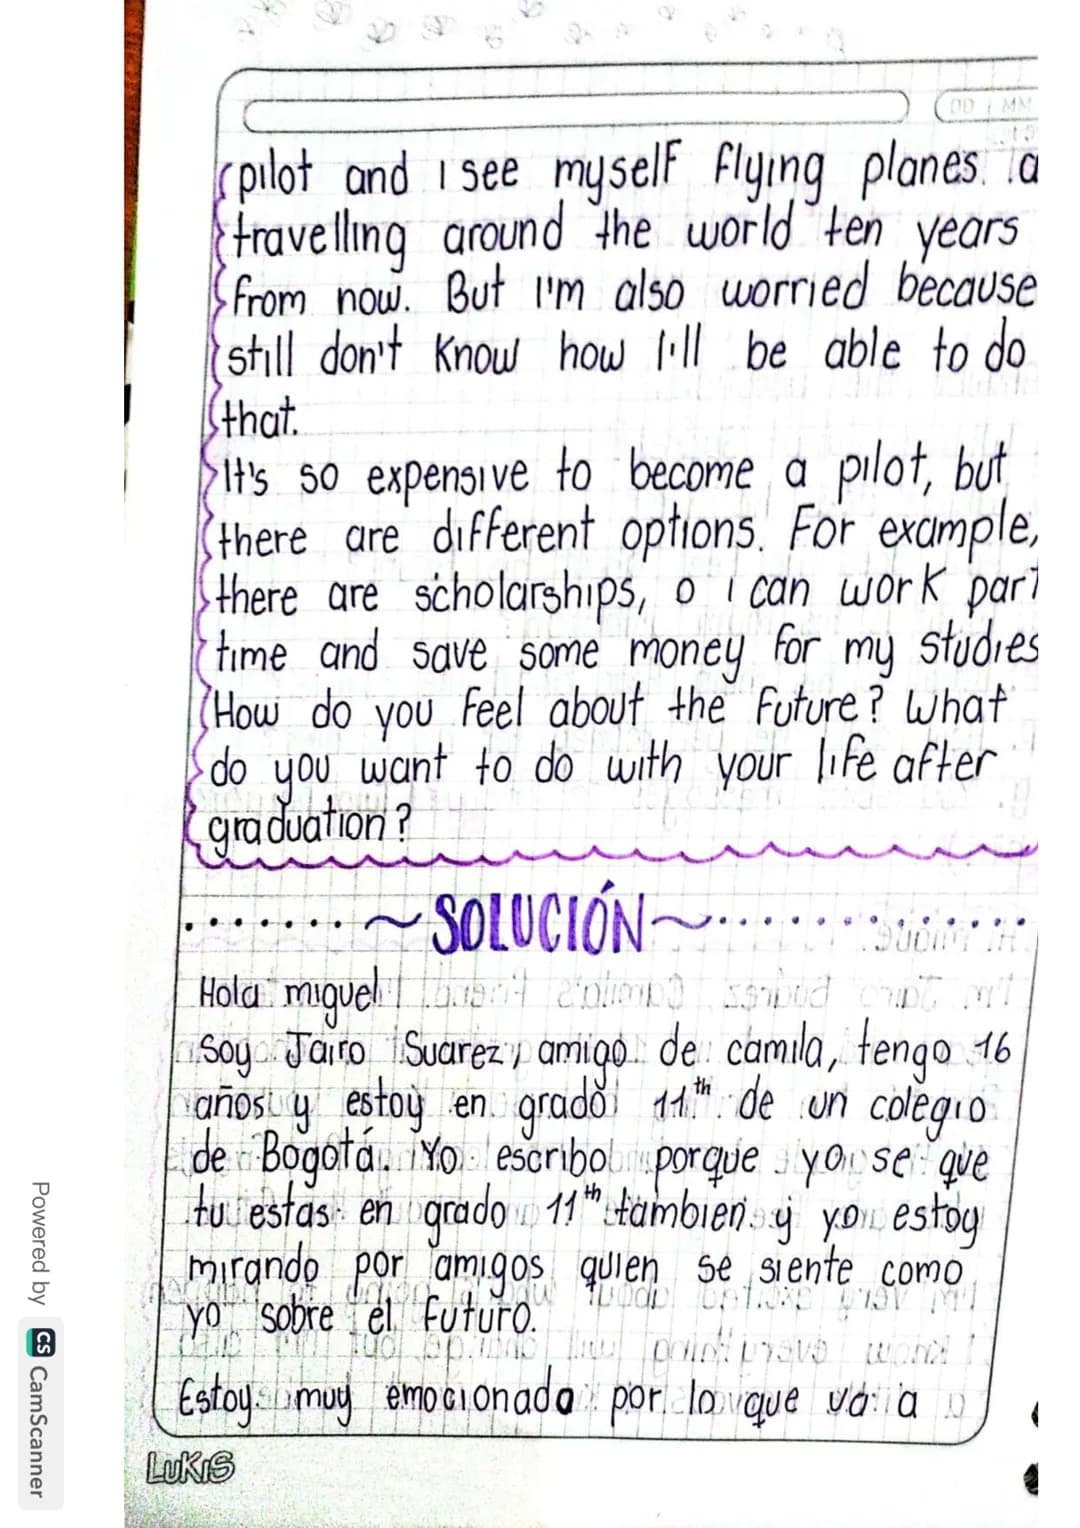 DD MM
pilot and I see myself flying planes a
travelling around the world ten years
from now. But I'm also worried because
still don't know how I'll be able to do
that.
It's so expensive to become a pilot, but
there are different options. For example,
there are scholarships, o i can work part
time and save some money for my studies
How do you feel about the future? What
do you want to do with your life after
graduation?
SOLUCIÓN
Hola miguel
Soy Jairo Suarez, amigo de camila, tengo 16
años y estoy en grado 11th de un colegio
de Bogotá. Yo escribo porque yo se que
tu estas en grado 11th tambien y yo estoy
mirando por amigos quien se siente como
yo sobre el futuro.
Estoy muy emocionada por lo que va a
LUKIS
Powered by CS CamScanner